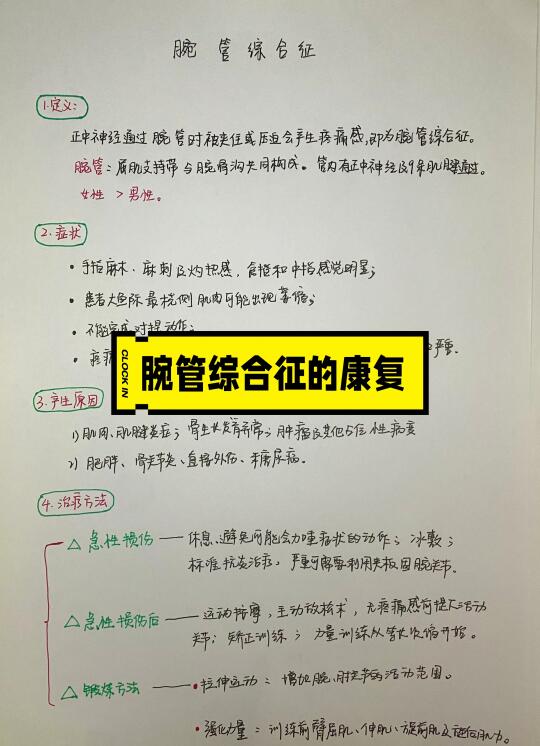 腕管综合征
1.定义:
正中神经通过腕管时被夹住或压迫会产生疼痛感,即为腕管综合征。
腕管:屈肌支持带与腕骨沟共同构成。管内有正中神经及9条肌腱通过。
女性 > 男性。
2.症状
• 手指麻木、麻刺及灼热感,食指和中指感觉明显;
• 患者大鱼际最桡侧肌肉可能出现萎缩;
• 不能完成对掌动作;
• 疼
CLOCK IN
腕管综合征的康复
3.产生原因
1) 肌肉、肌腱炎症;骨生长发育异常;肿瘤及其他占位性病变
2) 肥胖、骨关节炎、直接外伤、糖尿病。
4.治疗方法
△ 急性损伤 — 休息、避免可能会加重症状的动作;冰敷;
标准抗炎治疗,严重可需要利用夹板固腕关节。
△ 急性损伤后 — 运动按摩,主动放松术,无疼痛感前提大活动
关节;矫正训练;力量训练从等长收缩开始。
△ 锻炼方法 — • 拉伸运动:增加腕、肘关节的活动范围。
• 强化力量:训练前臂屈肌、伸肌、旋前肌及